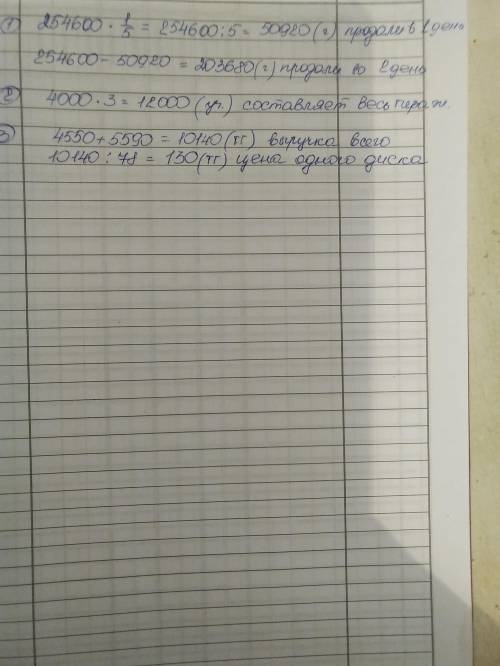 1) 254600 · 1/5 = 254600 : 5 = 50920 (г) продали в 1 день
254600 - 50920 = 203680 (г) продали во 2 день
2) 4000 · 3 = 12000 (уч.) составляет весь тираж.
3) 4550 + 5590 = 10140 (тг) выручка всего
10140 : 78 = 130 (тг) цена одного диска